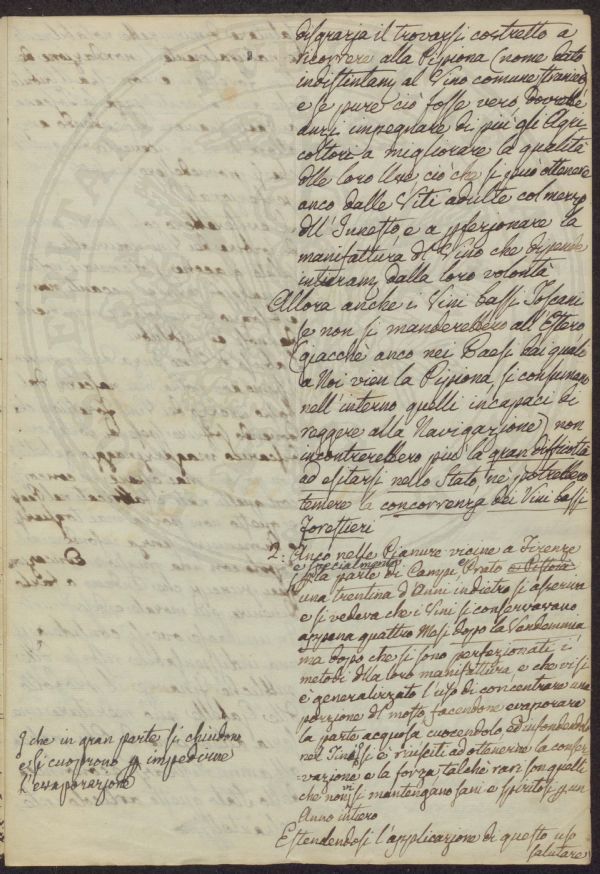 disgrazia il trovarsi costretto a
ricorrere alla Pissiona (nome dato
indistintam. al Vino comune straniero)
e se pure ciò fosse vero dovrebbe
anzi impegnare di più gli Agri-
coltori a migliorare la qualità
delle loro Uve ciò che si può ottenere
anco dalle Viti adulte col mezzo
dell'Innesto, e a pfezionare la
manifattura del Vino che dipende
intieram. dalla loro volontà
Allora anche i Vini bassi Toscani
se non si manderebbero all'Estero
(giacchè anco nei Paesi dai quali
a Noi vien la Pissiona, si consumano
nell'interno quelli incapaci di
reggere alla Navigazione) non
incontrerebbero più la gran difficoltà
ad esitarsi nello Stato, nè potrebbero
temere la concorrenza dei Vini bassi
Forestieri
2. Anco nelle Pianure vicine a Firenze
e specialmente
p la parte di Campi e Prato e Pistoia
una trentina d'Anni indietro si asseriva
e si vedeva che i Vini si conservavano
appena quattro Mesi dopo la Vendemmia
ma dopo che si sono perfezionati i
metodi della loro manifattura, e che vi si
è generalizzato l'uso di concentrare una
porzione del mosto facendone evaporare
la parte acquosa cuocendolo, ed infondendolo
nel Tino si è riusciti ad ottenerne la conser-
vazione e la forza talchè rari son quelli
che non vi si mantengano sani e spiritosi p un
Anno intiero
Estendendosi l'applicazione di questo uso
salutare
che in gran parte si chiudono
e si cuoprono p impedirne
l'evaporazione